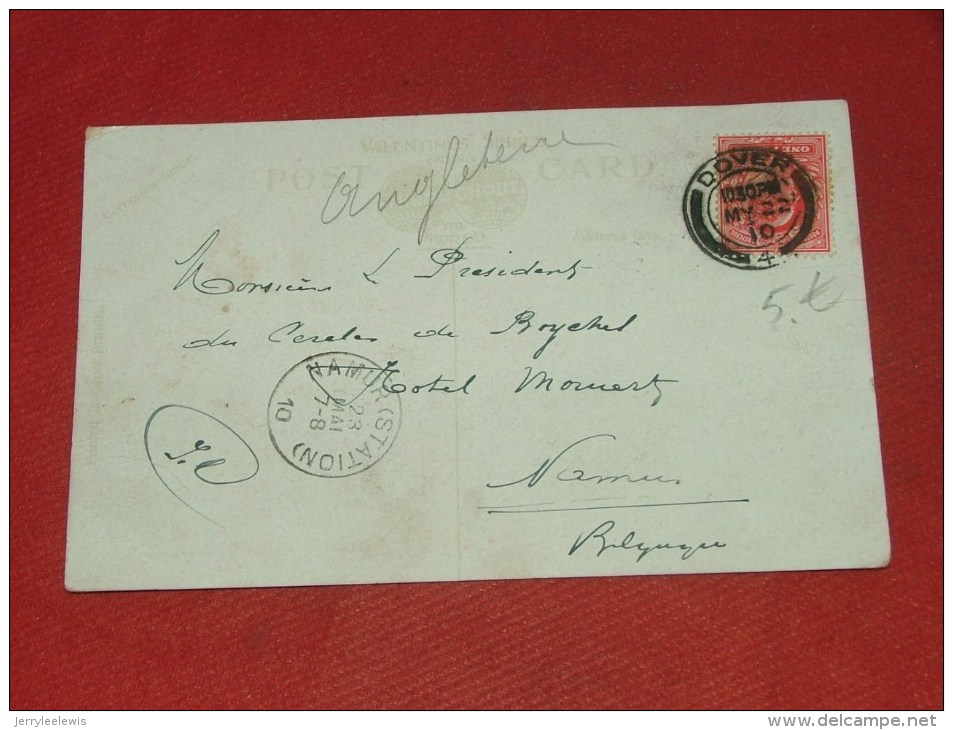 VALENTINES' SERIES
POST CARD
Angleterre
DOVER
10.30PM
MY 22
10
4
ONE
5.
Monsieur L President
du Cercles de
Hotel
NAMUR (STATION)
23
MAI
7-8
10
Namur
Belgique
Jerryleelewis
www.delcampe.net